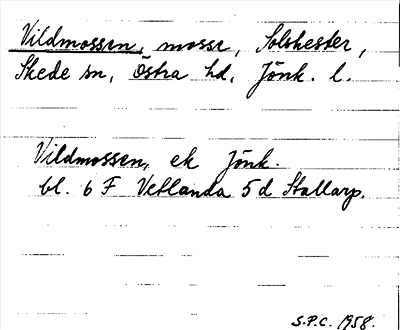 Vildmossen, mosse, Solshester,
Skede sn, Östra hd, Jönk. l.
Vildmossen, ek Jönk.
bl. 6 F Vetlanda 5 d Stallarp.
S.P.C. 1958.